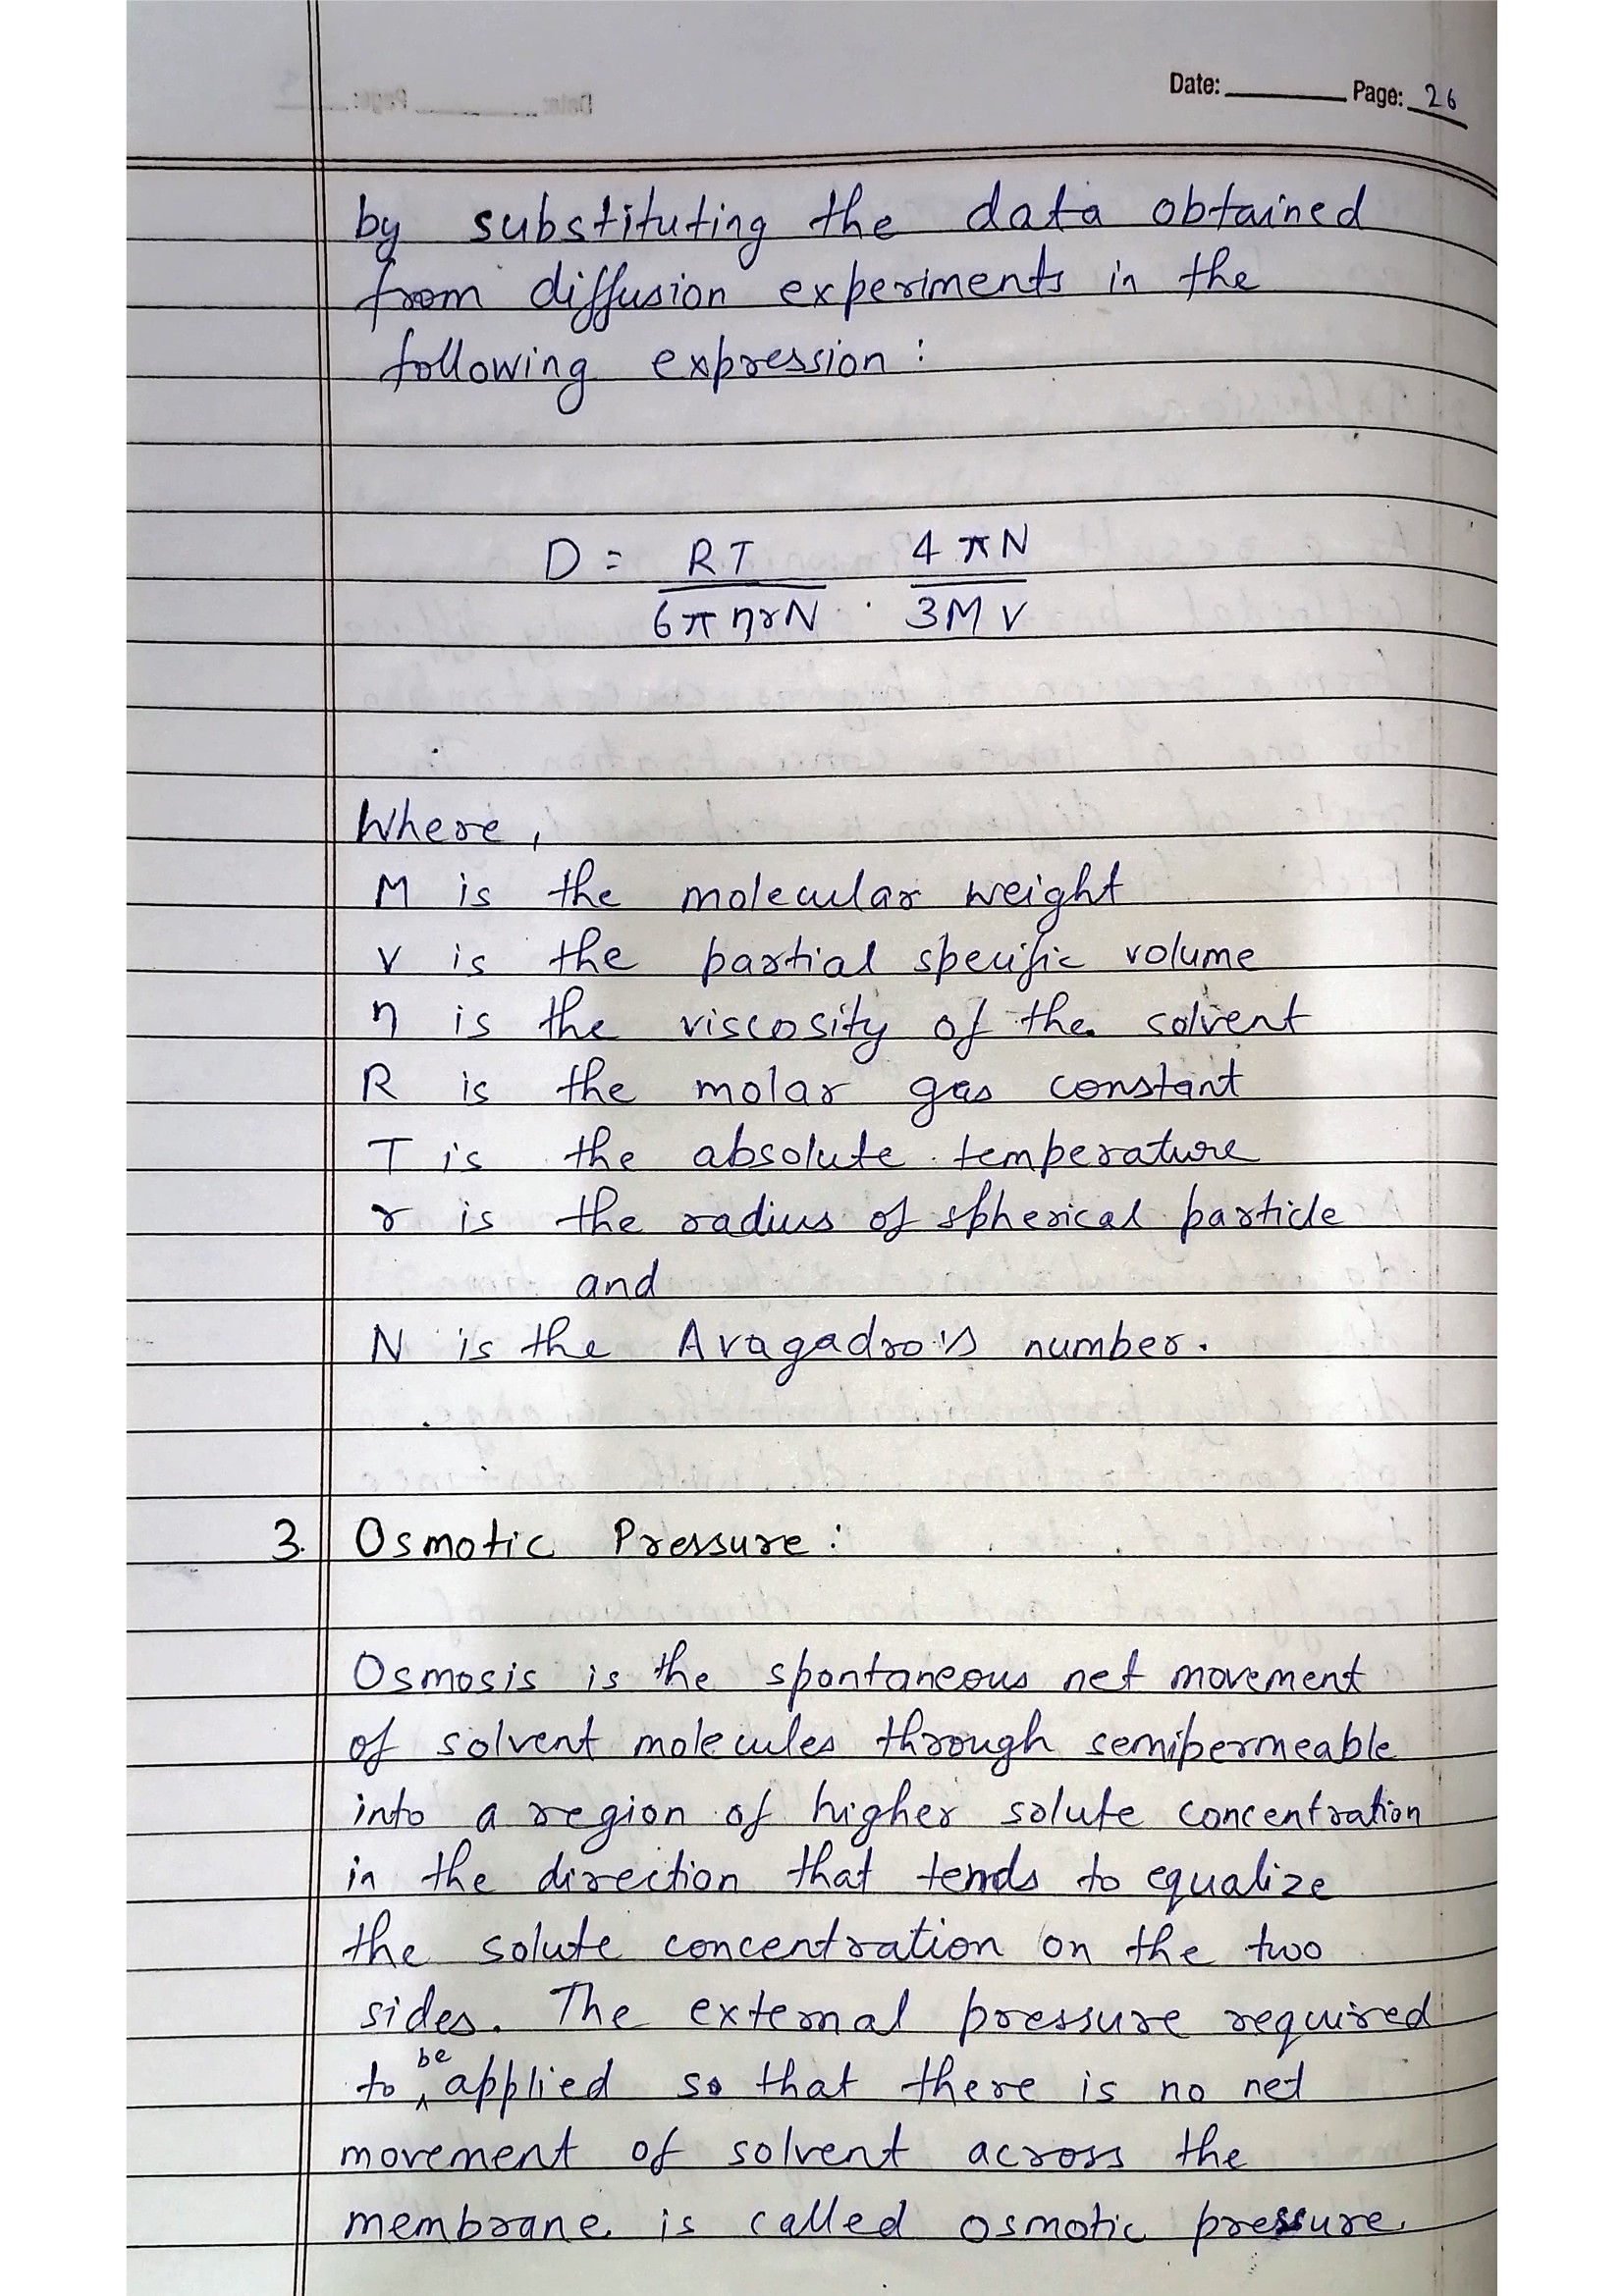 Date: Page: 26
by substituting the data obtained
from diffusion experiments in the
following expression :
D = RT / 6πηrN . 4πN / 3MV
Where,
M is the molecular weight
V is the partial specific volume
η is the viscosity of the solvent
R is the molar gas constant
T is the absolute temperature
r is the radius of spherical particle
and
N is the Avagadro's number.
3. Osmotic Pressure :
Osmosis is the spontaneous net movement
of solvent molecules through semipermeable
into a region of higher solute concentration
in the direction that tends to equalize
the solute concentration on the two
sides. The external pressure required
to be applied so that there is no net
movement of solvent across the
membrane is called osmotic pressure.